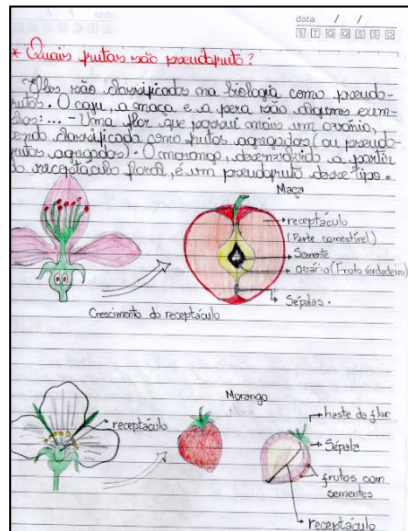 data / /
S T Q Q S S D
* Quais frutas são pseudofruto?
Eles são classificados na biologia como pseudo-
frutos. O caju, a maça e a pera são algumas exem-
plos:... - Uma flor que possui mais um ovário,
sendo classificada como frutos agregados (ou pseudo-
frutos agregados). O morango, desenvolvido a partir
do receptáculo floral, é um pseudofruto desse tipo.
Maça
receptáculo
(Parte comestível)
Semente
ovário (Fruto verdadeiro)
Sépalas.
Crescimento do receptáculo
Morango
receptáculo
haste da flor
Sépala
frutos com
sementes
receptáculo